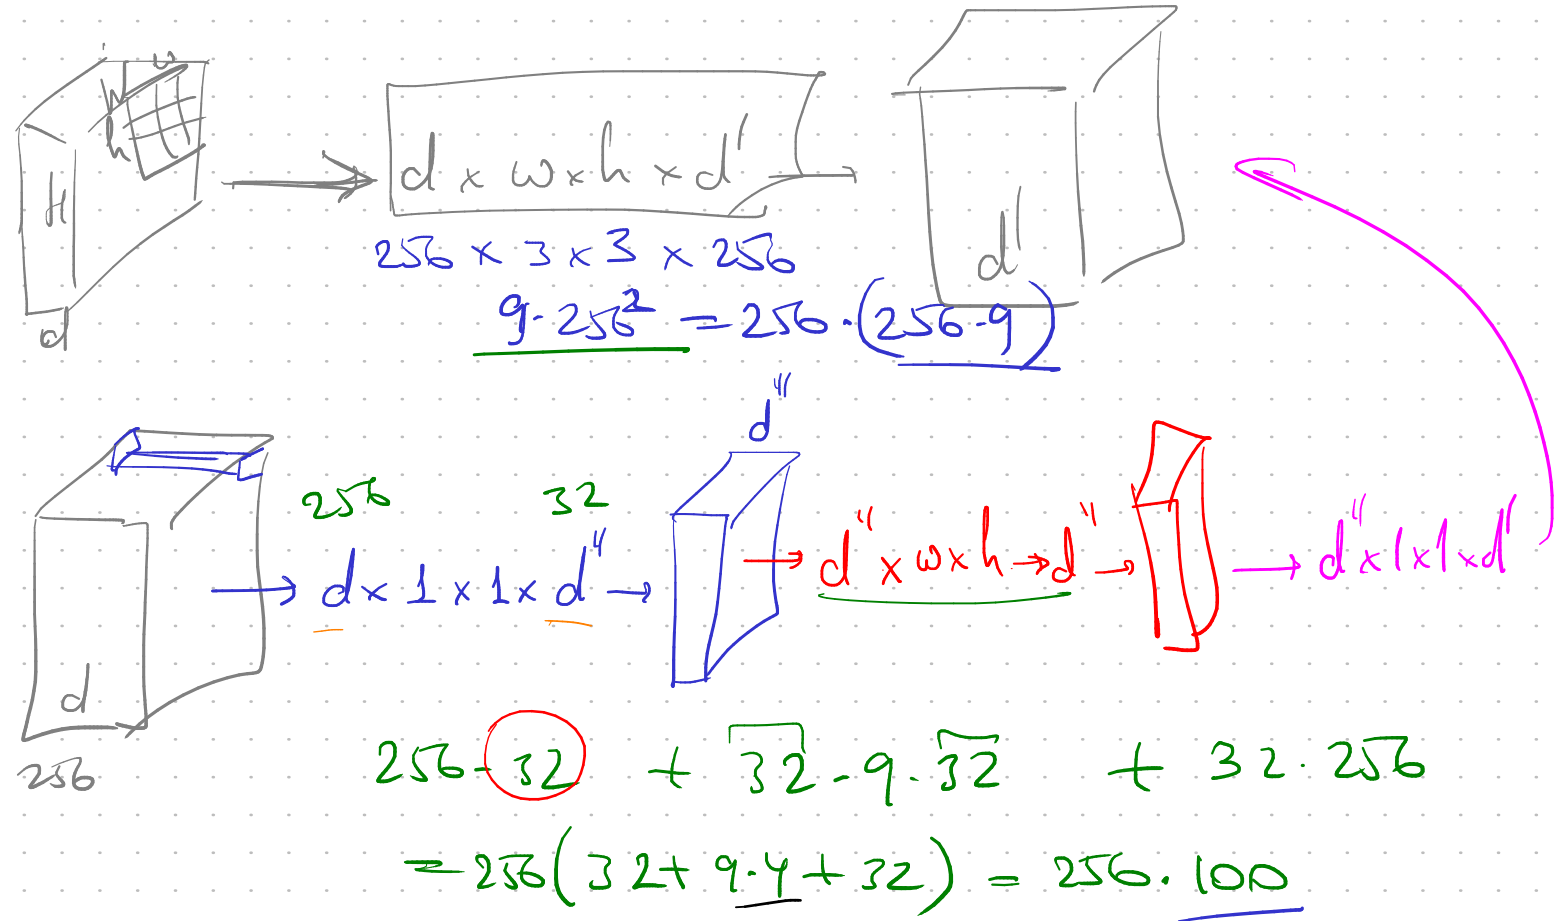 W w
h
H
d
d × w × h × d'
d'
256 × 3 × 3 × 256
9·256² = 256·(256·9)
d''
256 32
d × 1 × 1 × d''
d'' × w × h → d''
d'' × 1 × 1 × d'
d
256
256·32 + 32·9·32 + 32·256
= 256(32 + 9·4 + 32) = 256·100